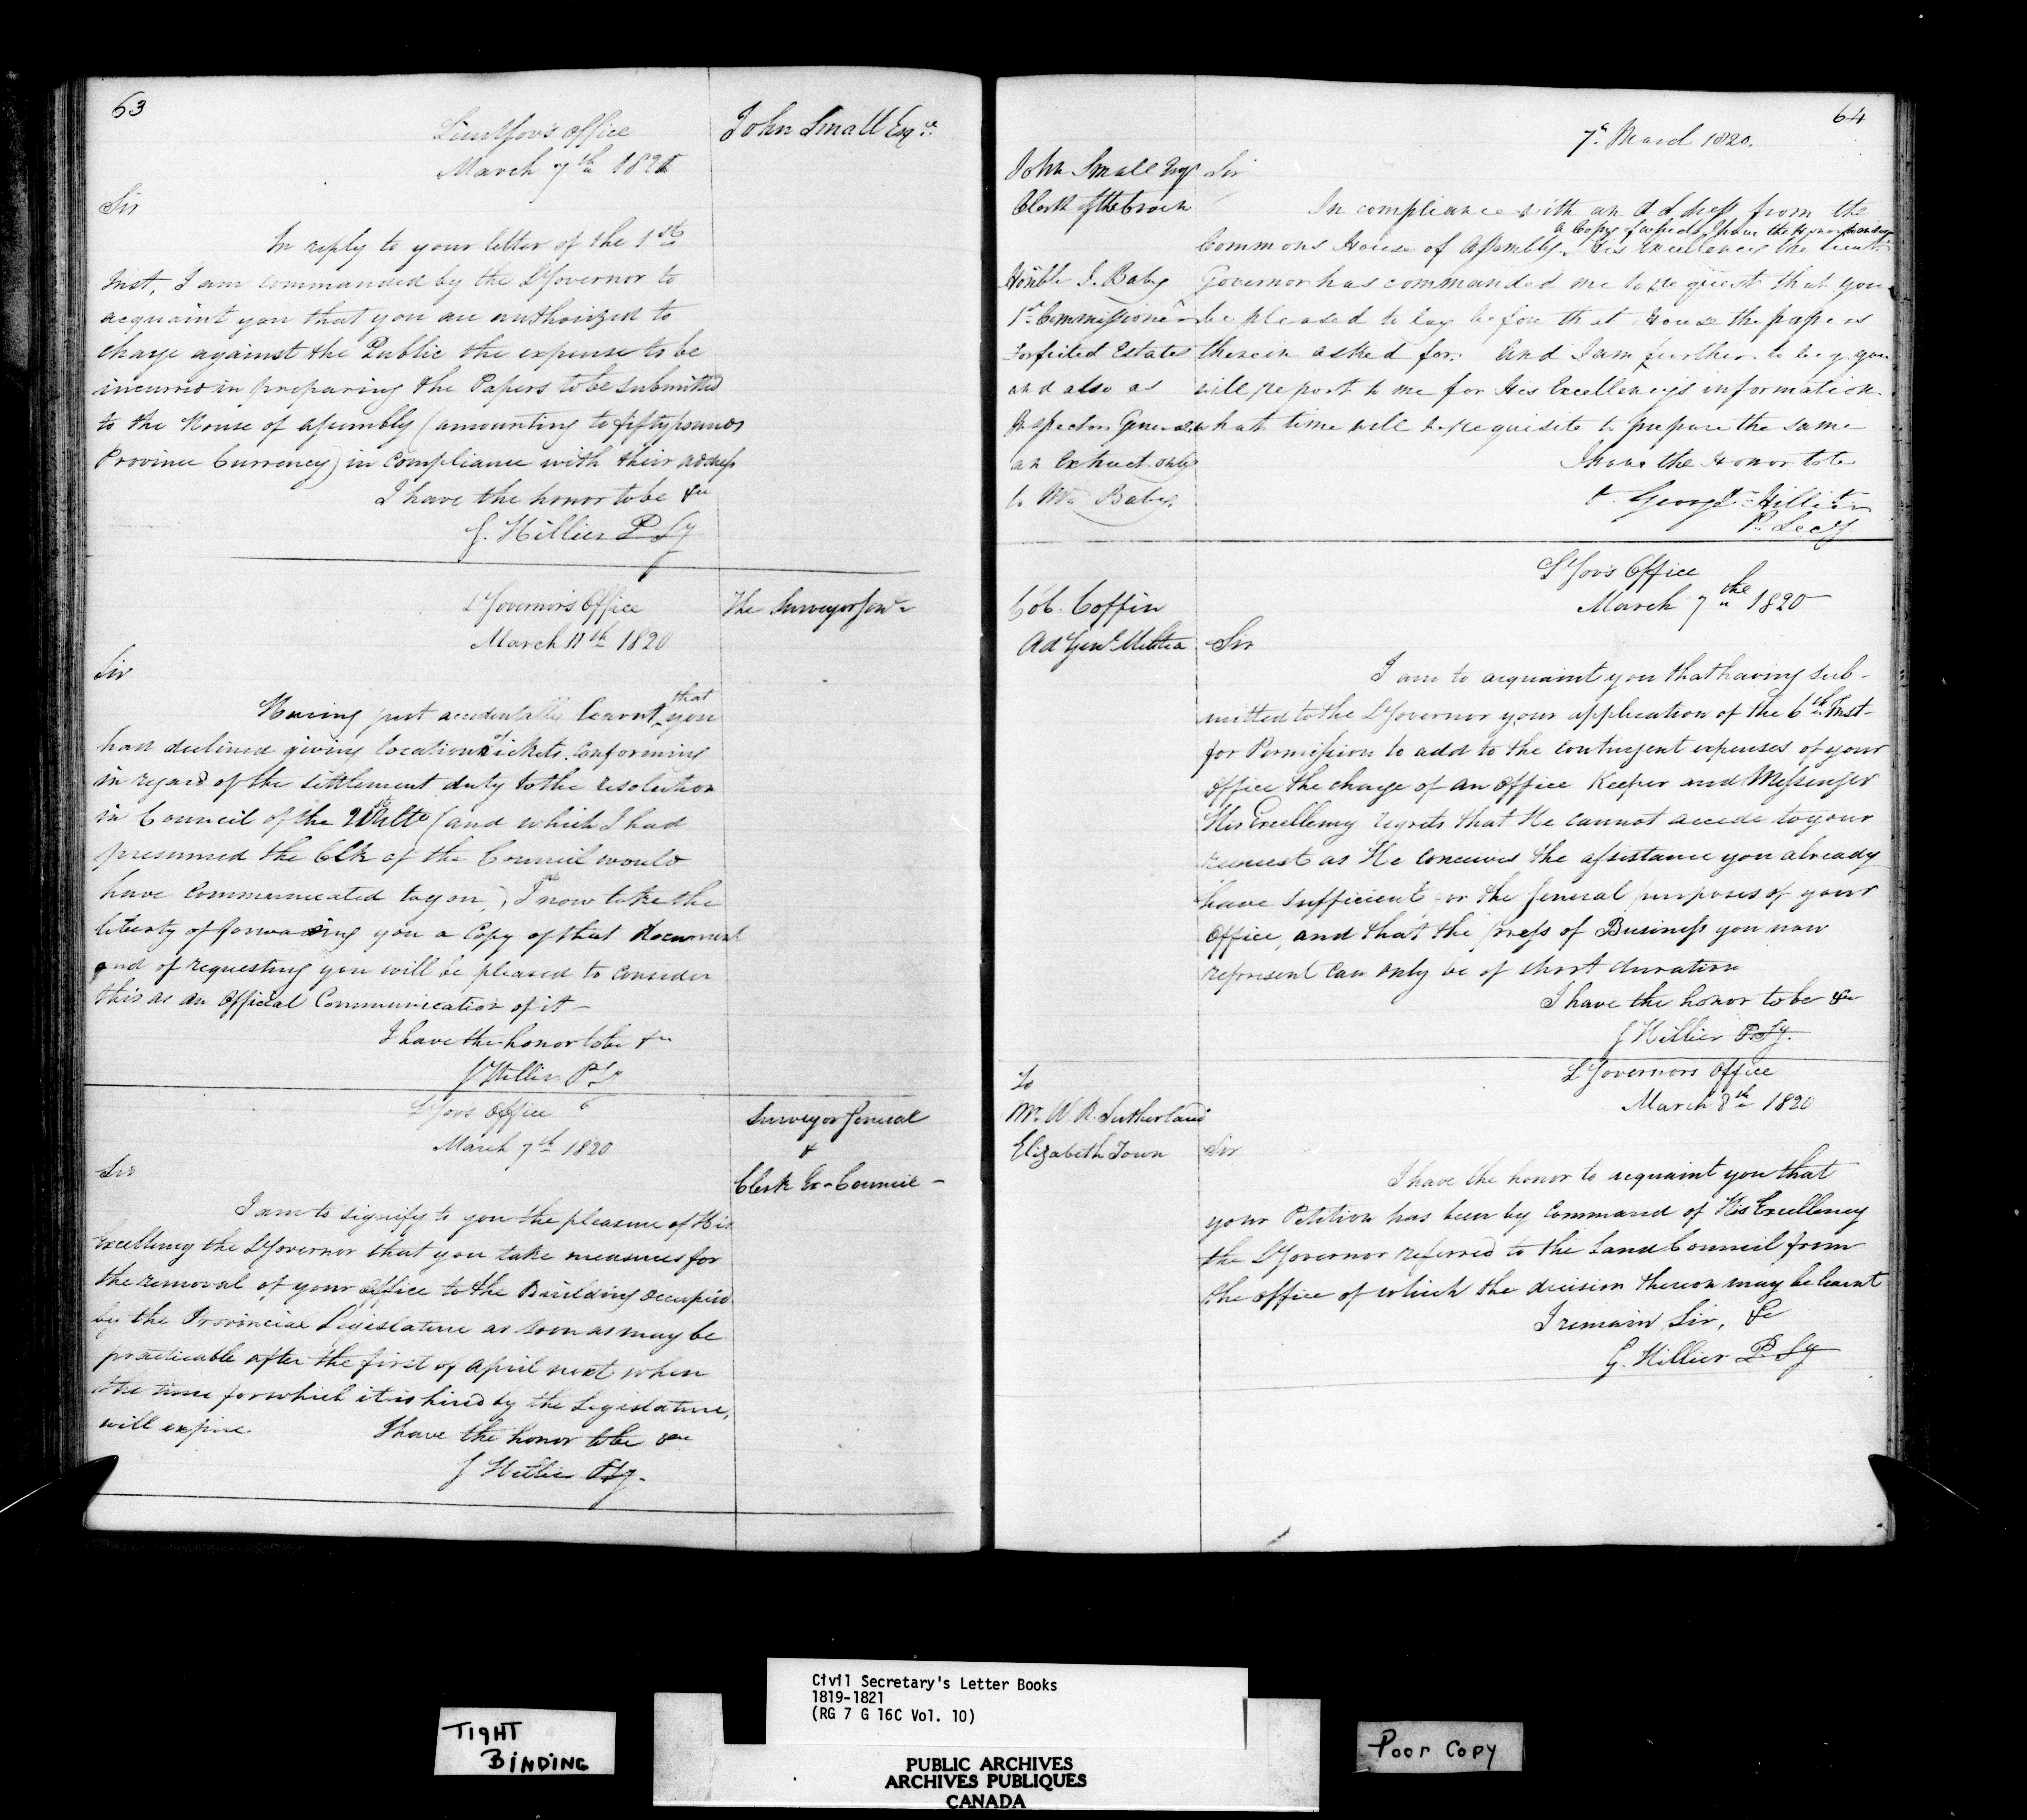 63
Lieut Gov's Office
March 7th 1821
John Small Esqr.
Sir
In reply to your letter of the 1st
Inst, I am commanded by the Lt Governor to
acquaint you that you are authorized to
charge against the Public the expense to be
incurred in preparing the Papers to be submitted
to the House of Assembly (amounting to fifty pounds
Province Currency) in compliance with their address
I have the honor to be &c
G. Hillier P Sy
Lt Governor's Office
March 11th 1820
The Surveyor Genl
Sir
Having just accidentally learnt that you
had declined giving location tickets conforming
in regard of the settlement duty to the resolution
in Council of the Ulto (and which I had
presumed the Clk of the Council would
have communicated to you,) I now take the
liberty of forwarding you a Copy of that document
and of requesting you will be pleased to consider
this as an Official Communication of it -
I have the honor to be &c
G Hillier P Sy
Lt Govs Office
March 7th 1820
Surveyor General
&
Clerk Ex-Council -
Sir
I am to signify to you the pleasure of His
Excellency the Lt Governor that you take measures for
the removal of your office to the Building occupied
by the Provincial Legislature as soon as may be
practicable after the first of April next when
the time for which it is hired by the Legislature,
will expire I have the honor to be &c
G Hillier P Sy.
64
7th March 1820.
John Small Esqr
Clerk of the Crown
Honble J. Baby
1st Commissioner
Forfeited Estates
and also as
Inspector General
an Extract only
to Mr Baby.
Sir
In compliance with an Address from the
a Copy of which I have the honor to enclose
Commons House of Assembly. His Excellency the Lieut
Governor has commanded me to request that you
be pleased to lay before that House the papers
therein asked for. And I am further to beg you
will report to me for His Excellency's information
what time will be requisite to prepare the same
I have the Honor to be
& George Hillier
P. Secy
Lt Govs Office
March 7th 1820
Col. Coffin
Ad Genl Militia
Sir
I am to acquaint you that having sub-
mitted to the Lt Governor your application of the 6th Inst-
for Permission to add to the contingent expenses of your
office the charge of an Office Keeper and Messenger
His Excellency regrets that He cannot accede to your
request as He conceives the assistance you already
have sufficient for the general purposes of your
Office, and that the press of Business you now
represent can only be of short duration
I have the honor to be &c
G Hillier P Sy.
Lt Governors Office
March 8th 1820
To
Mr. W. R. Sutherland
Elizabeth Town
Sir
I have the honor to acquaint you that
your Petition has been by Command of His Excellency
the Lt Governor referred to the Land Council from
the office of which the decision thereon may be learnt
I remain Sir, &c
G. Hillier P. Sy
TIGHT
BINDING
Civil Secretary's Letter Books
1819-1821
(RG 7 G 16C Vol. 10)
PUBLIC ARCHIVES
ARCHIVES PUBLIQUES
CANADA
Poor Copy